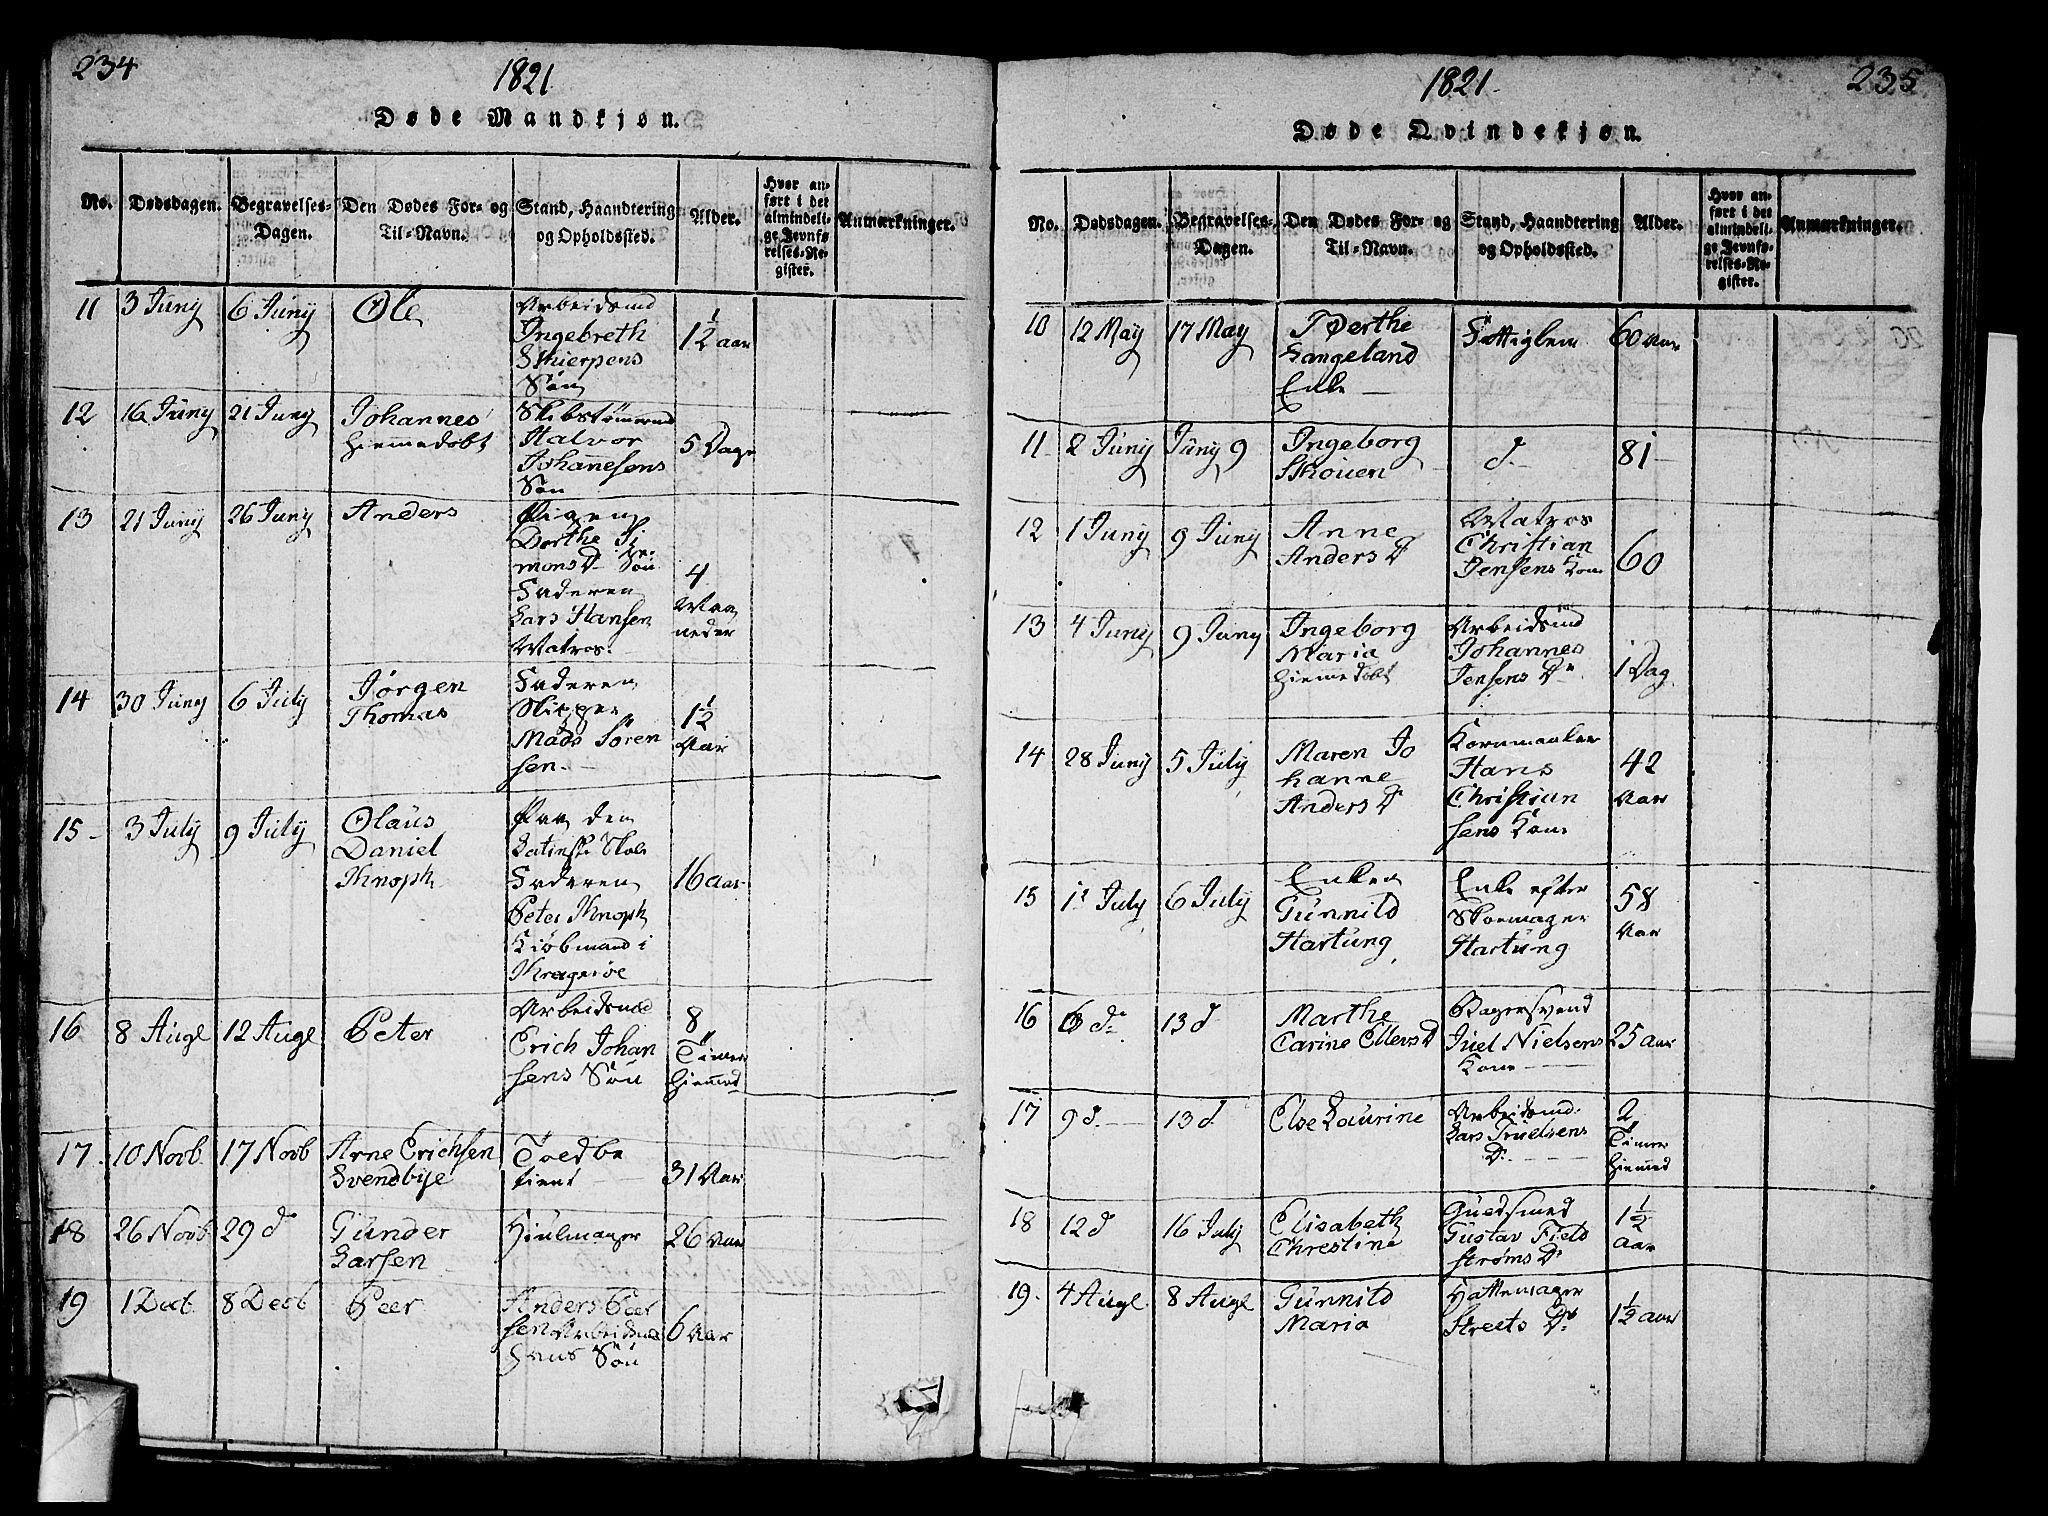 234
1821
Døde Mandkjøn.
No.
Dødsdagen.
Begravelses-
Dagen.
Den Dødes For- og
Til-Navn.
Stand, Haandtering
og Opholdssted.
Alder.
Hvor an-
ført i det
almindeli-
ge Jevnfø-
relses-Re-
gister.
Anmærkninger.
11
3 Juny
6 Juny
Ole
Arbeidsmd
Ingebreth
Skierpens
Søn
1½ aar
12
16 Juny
21 Juny
Johannes
hiemedøbt
Skibstømmermd
Halvor
Johannesens
Søn
5 Dage
13
21 Juny
26 Juny
Anders
Pigen
Dorthe Si
mons D. Søn
Faderen
Lars Hansen
Matros.
4
Maa
neder
14
30 Juny
6 July
Jørgen
Thomas
Faderen
Skipper
Mads Søren
sen.
1½
Aar
15
3 July
9 July
Olaus
Daniel
Knoph
Paa den
Latinske Skole
Faderen
Peter Knoph
Kiøbmand i
Kragerøe
16 aar
16
8 Augt
12 Augt
Peter
Arbeidsmd
Erich Johan
sens Søn
8
Timer
hiemmed
17
10 Novb.
17 Novb
Arne Erichsen
Svendbye
Toedbe
tient
31 Aar
18
26 Novb
29 d
Gunder
Larsen
Hiulmager
26 Aar
19
1 Decb.
8 Decb
Peer
Anders Peer
sen Arbeidsmd
hans Søn
6 Aar
1821
235
Døde Qvindekjøn.
No.
Dødsdagen.
Begravelses-
Dagen.
Den Dødes For- og
Til-Navn.
Stand, Haandtering
og Opholdssted.
Alder.
Hvor an-
ført i det
almindeli-
ge Jevnfø-
relses-Re-
gister.
Anmærkninger.
10
12 May
17 May
Dorthe
Langeland
Enke
Fattiglem
60 Aar
11
2 Juny
Juny 9
Ingeborg
Skouen
d.
81
12
1 Juny
9 Juny
Anne
Anders D
Matros
Christian
Jensens Kone
60
13
4 Juny
9 Juny
Ingeborg
Maria
hiemmedøbt
Arbeidsmd
Johannes
Jensens Dr
1 Dag
14
28 Juny
5 July
Maren Jo
hanne
Anders D
Kornmaaler
Hans
Christian
sens Kone
42
Aar
15
1 July
6 July
Enken
Gunnild
Hartung
Enke efter
Skoemager
Hartung
58
Aar
16
6 d.
13 d
Marthe
Carine Ellens D
Bagersvend
Juel Nielsens
Kone
25 aar
17
9 d.
13 d
Else Laurine
Arbeidsmd.
Lars Truelsens
D.
2
Timer
hiemmed
18
12 d
16 July
Elisabeth
Chrestine
Guldsmed
Gustav Field
strøms D.
1½
aar
19.
4 Augt.
8 Augt
Gunnild
Maria
Hattemager
Streets D.
1½ aar